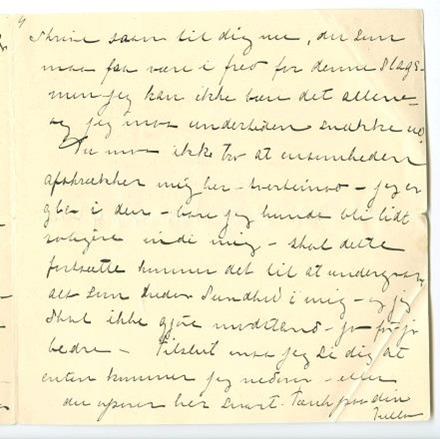 4
skrive saan til dig nu, du som
maa faa være i fred for denne Slags-
men jeg kan ikke bære det allene-
og jeg maa undertiden snakke ud.
Du maa ikke tro at ensomheden
afskrækker mig her - tvertimod - jeg er
glad i den - bare jeg kunde bli lidt
roligere inde i mig - skal dette
fortsætte kommer det til at undergrave
alt som heder Sundhed i mig - og jeg
skal ikke gjøre modstand - jo før jo
bedre - Tilslut maa jeg si dig at
enten kommer jeg nedover - eller
du opover her snart. Tænk paa din